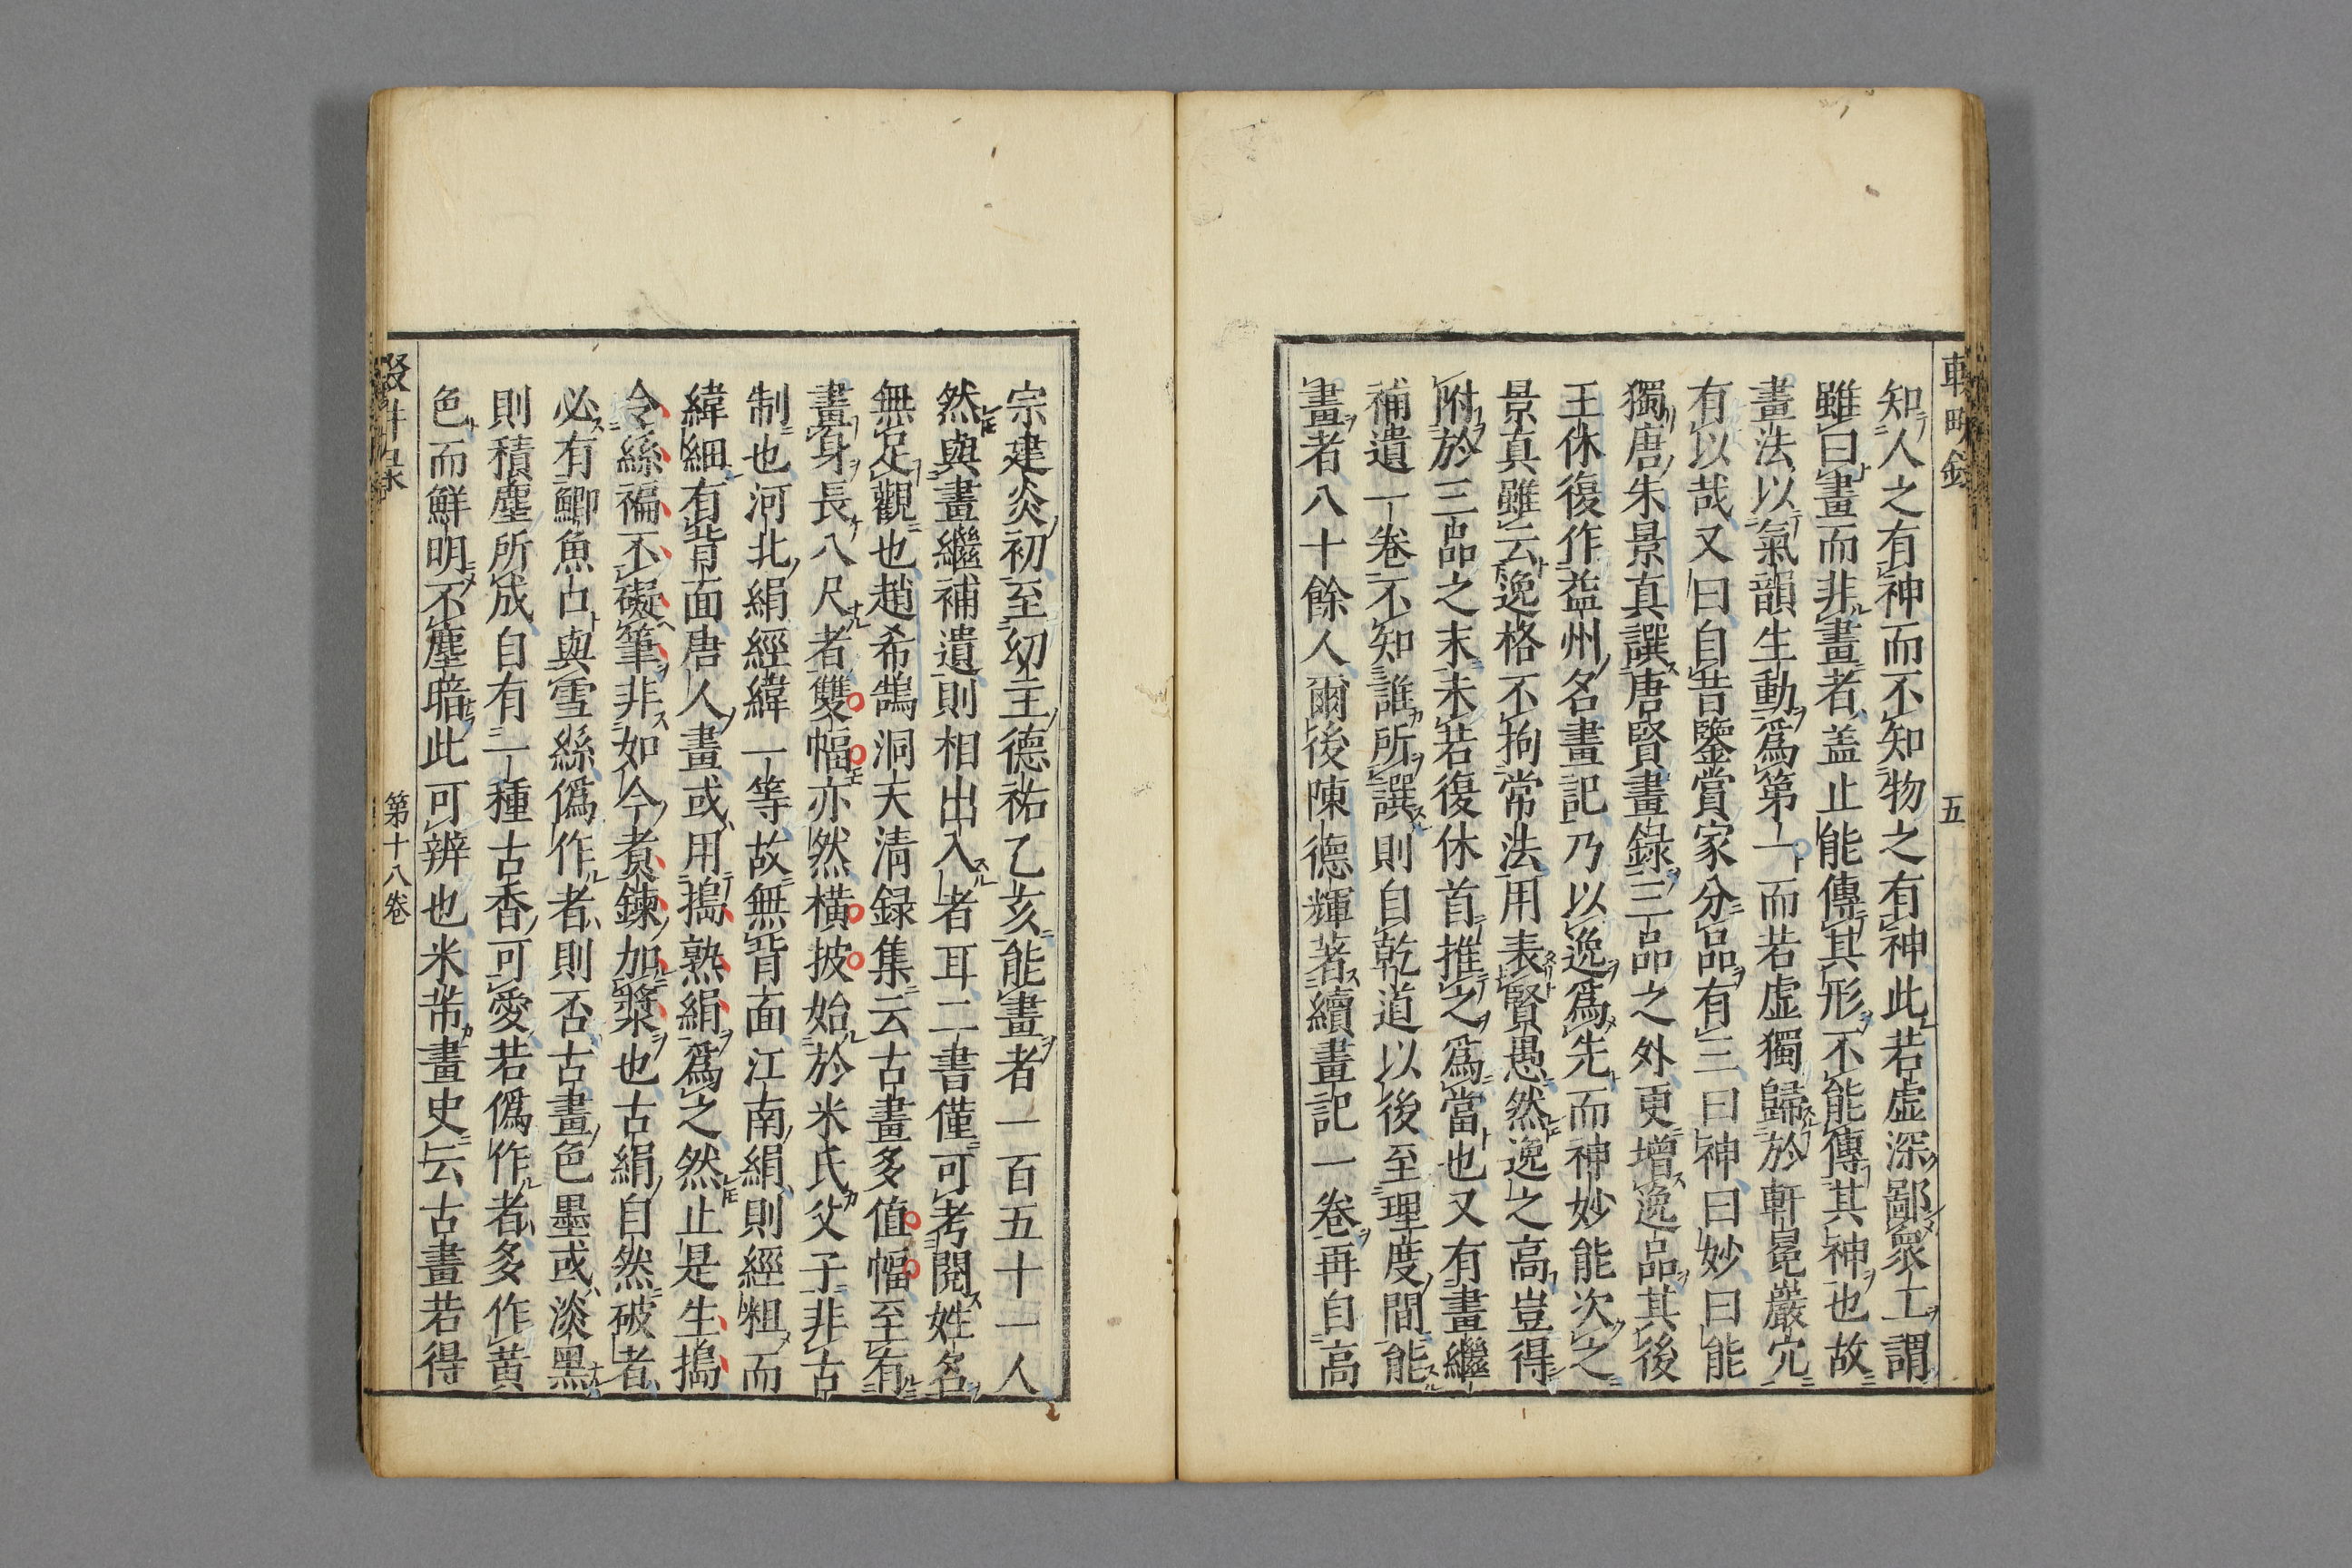 知人之有神而不知物之有神此若虛深鄙衆工謂
雖曰畫而非畫者盖止能傳其形不能傳其神也故
畫法以氣韻生動爲第一而若虛獨歸於軒冕巖穴
有以哉又曰自昔鑒賞家分品有三曰神曰妙曰能
獨唐朱景真譔唐賢畫錄三品之外更增逸品其後
王休復作益州名畫記乃以逸爲先而神妙能次之
景真雖云逸格不拘常法用表賢愚然逸之高豈得
附於三品之末未若復休首推之爲當也又有畫繼
補遺一卷不知誰所譔則自乾道以後至理度間能
畫者八十餘人爾後陳德輝著續畫記一卷再自高
五
宗建炎初至幼主德祐乙亥能畫者一百五十一人
然與畫繼補遺則相出入者耳二書僅可考閱姓名
無足觀也趙希鵠洞天清録集云古畫多值幅至有
畫身長八尺者雙幅亦然橫披始於米氏父子非古
制也河北絹經緯一等故無背面江南絹則經粗而
緯細有背面唐人畫或用搗熟絹爲之然止是生搗
令絲褊不礙筆非如今煮鍊加漿也古絹自然破者
必有鯽魚口與雪絲僞作者則否古畫色墨或淡黑
則積塵所成自有一種古香可愛若僞作者多作黃
色而鮮明不塵暗此可辨也米芾畫史云古畫若得
第十八卷